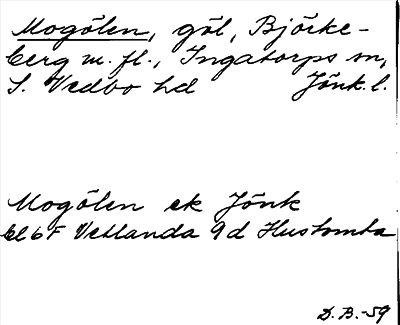 Mogölen, göl, Björke-
berg m. fl., Ingatorps sn,
S. Vedbo hd Jönk. l.
Mogölen ek Jönk
Bl 6F Vetlanda 9d Hustomta
D. B. -59